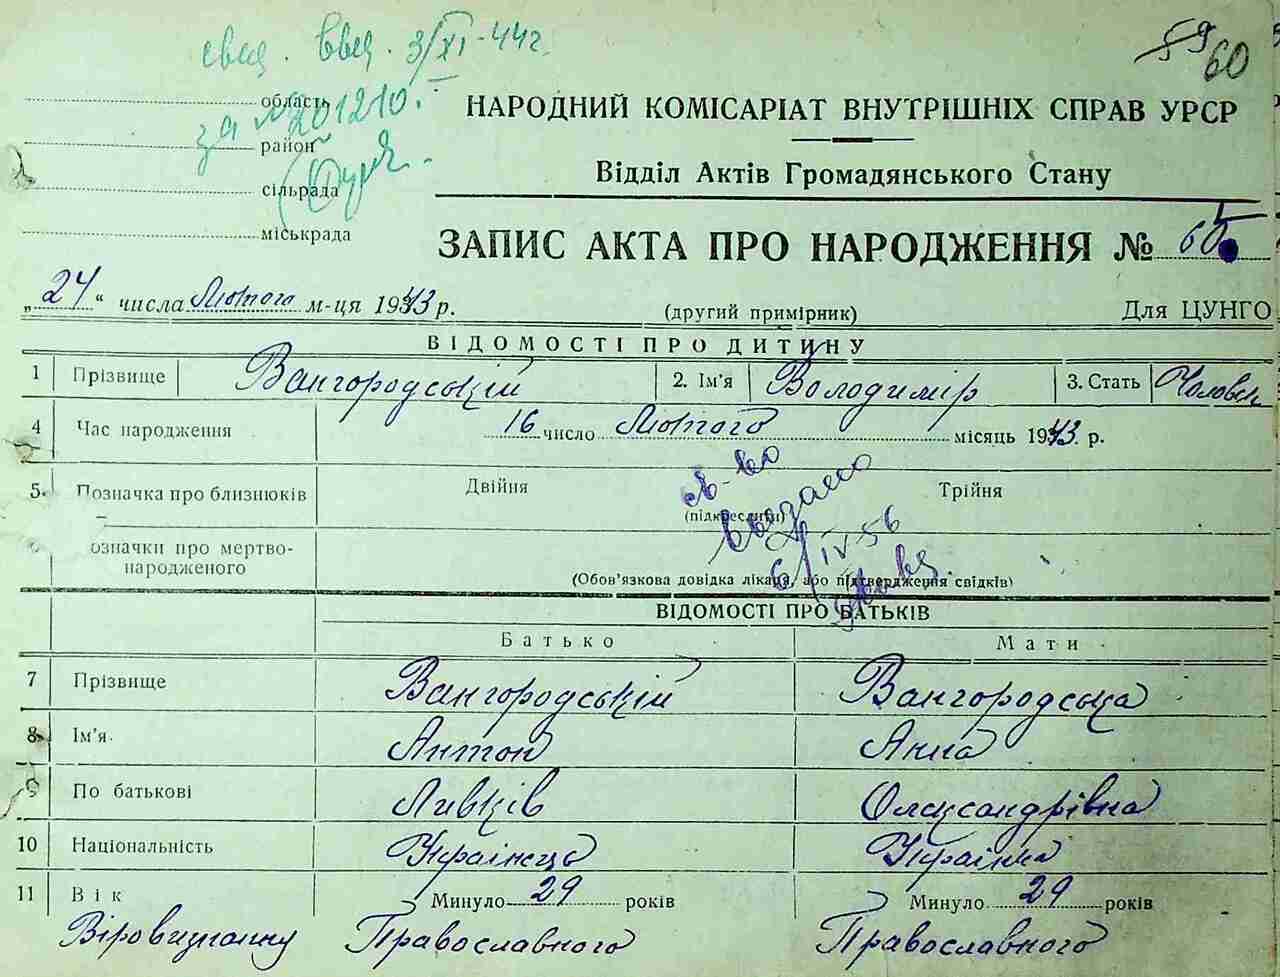 свид. выд. 3/XI-44г.
за № 201210.
59 60
область
район
сільрада
міськрада
НАРОДНИЙ КОМІСАРІАТ ВНУТРІШНІХ СПРАВ УРСР
Відділ Актів Громадянського Стану
ЗАПИС АКТА ПРО НАРОДЖЕННЯ №
„24“ числа Лютого м-ця 1943 р. (другий примірник) Для ЦУНГО
ВІДОМОСТІ ПРО ДИТИНУ
1 Прізвище Вангородський 2. Ім'я Володимір 3. Стать Чоловік
4 Час народження 16 число Лютого місяць 1943 р.
5. Позначка про близнюків Двійня (підкреслити) Трійня
означки про мертво-
народженого
(Обов'язкова довідка лікаря, або підтвердження свідків)
6/IV-56
ВІДОМОСТІ ПРО БАТЬКІВ
Батько Мати
7 Прізвище Вангородський Вангородська
8 Ім'я Антон Анна
9 По батькові Олександрівна
10 Національність Українець Українка
11 Вік Минуло 29 років Минуло 29 років
Віровизнання Православного Православного